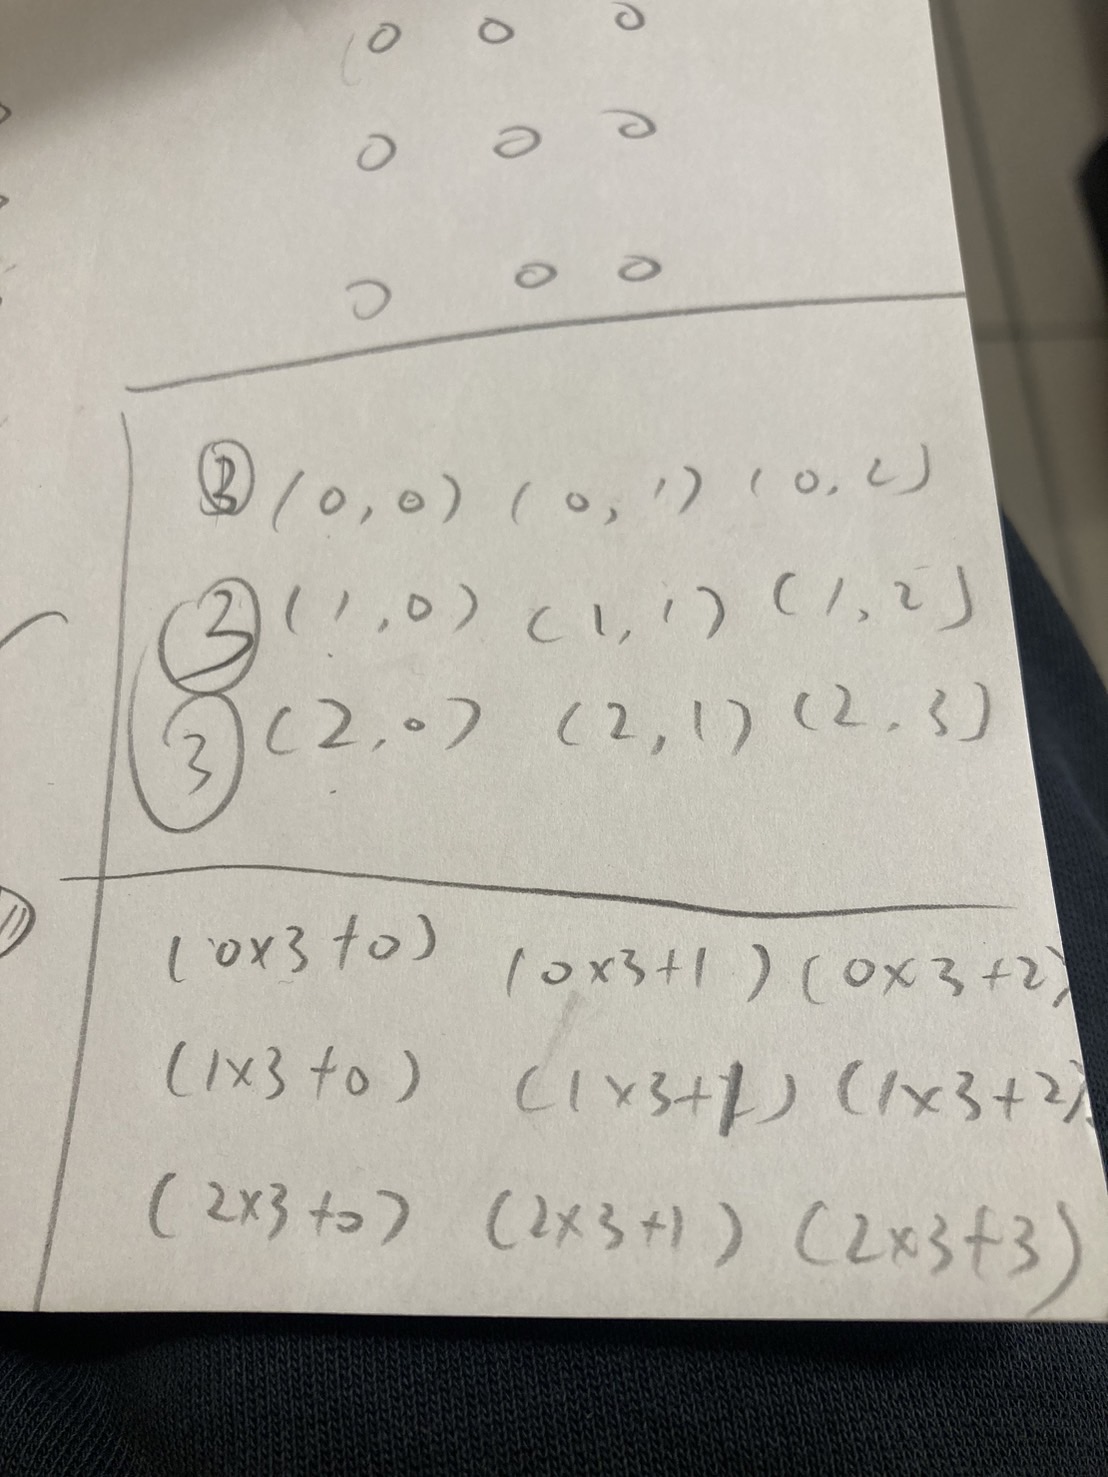 0 0 0
0 0 0
0 0 0
③ (0,0) (0,1) (0,2)
③ (1,0) (1,1) (1,2)
③ (2,0) (2,1) (2,3)
(0x3+0) (0x3+1) (0x3+2)
(1x3+0) (1x3+1) (1x3+2)
(2x3+0) (2x3+1) (2x3+3)